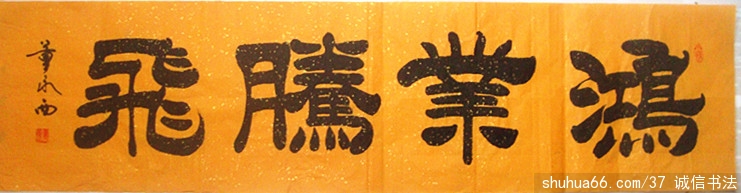 鴻業騰飛
董水西
shuhua66.com/37 诚信书法